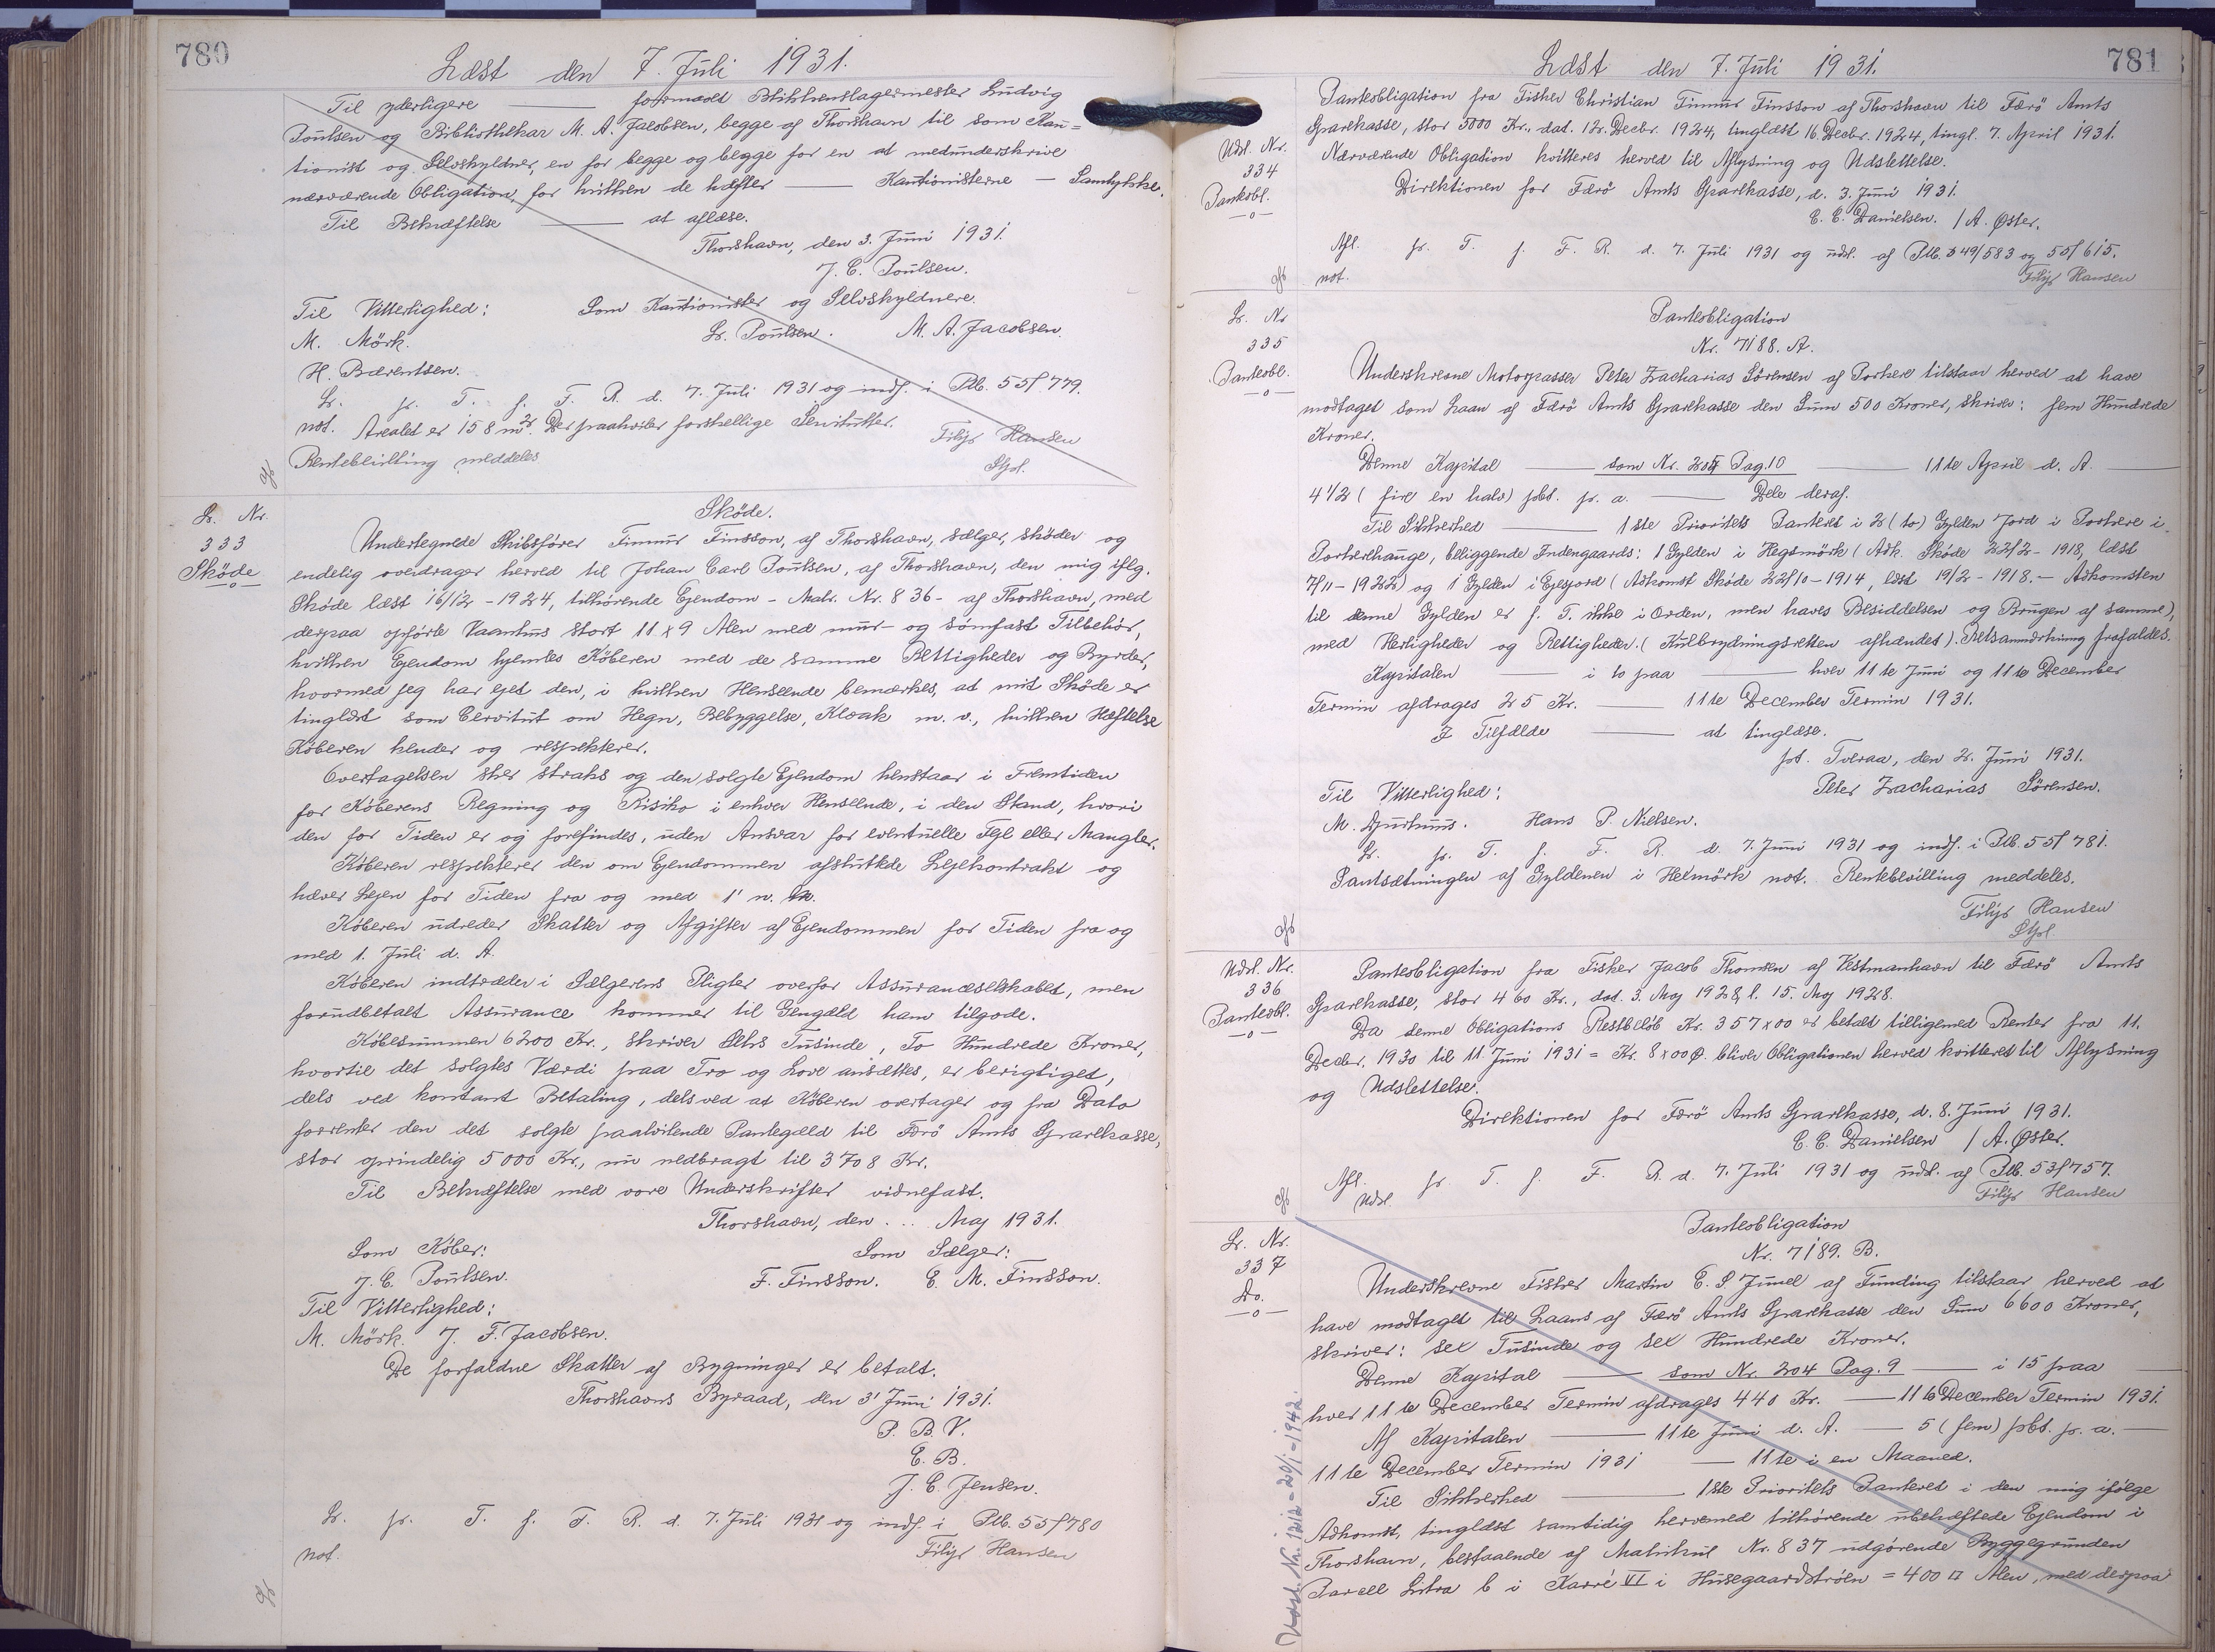 780
Læst den 7. Juli 1931.
Til yderligere ——— formaaet Blikkenslagermester Ludvig
Poulsen og Bibliothekar M. A. Jacobsen, begge af Thorshavn til som Kau=
tionist og Selvskyldner, en for begge og begge for en at medunderskrive
nærværende Obligation, for hvilken de hæfter —— Kautionisterne — Samtykke.
Til Bekræftelse ——— at aflæse.
Thorshavn, den 3. Juni 1931.
J. C. Poulsen.
Til Vitterlighed: Som Kautionister og Selvskyldnere.
M. Mörk. L. Poulsen. M. A. Jacobsen.
H. Bærentsen.
L. p. T. f. F. R. d. 7. Juli 1931 og indf. i Ptb. 55f 779.
not. Arealet er 158 m². Der paahviler forskellige Servitutter.
Rentebevilling meddeles Filip Hansen
Stpl.
L. Nr.
333
Sköde
—o—
Sköde.
Undertegnede Skibsförer Finnur Finsson, af Thorshavn, sælger, sköder og
endelig overdrager herved til Johan Carl Poulsen, af Thorshavn, den mig iflg.
Sköde læst 16/12 - 1924, tilhörende Ejendom - Matr. Nr. 836 - af Thorshavn, med
derpaa opförte Vaanhus stort 11 x 9 Alen med mur- og sömfast Tilbehör,
hvilken Ejendom hjemles Köberen med de samme Rettigheder og Byrder,
hvormed jeg har ejet den, i hvilken Henseende bemærkes, at mit Sköde er
tinglæst som Servitut om Hegn, Bebyggelse, Kloak m. v., hvilken Hæftelse
Köberen kender og respekterer.
Overtagelsen sker straks og den solgte Ejendom henstaar i Fremtiden
for Köberens Regning og Risiko i enhver Henseende, i den Stand, hvori
den for Tiden er og forefindes, uden Ansvar for eventuelle Fejl eller Mangler.
Köberen respekterer den om Ejendommen afsluttede Lejekontrakt og
hæver Lejen for Tiden fra og med 1' n. M.
Köberen udreder Skatter og Afgifter af Ejendommen for Tiden fra og
med 1. Juli d. A.
Köberen indtræder i Sælgerens Pligter overfor Assuranceselskabet, men
forudbetalt Assurance kommer til Gengæld ham tilgode.
Köbesummen 6200 Kr., skriver Seks Tusinde, To Hundrede Kroner,
hvortil det solgtes Værdi paa Tro og Love ansættes, er berigtiget,
dels ved kontant Betaling, dels ved at Köberen overtager og fra Dato
forrenter den det solgte paahvilende Pantegæld til Færö Amts Sparekasse,
stor oprindelig 5000 Kr., nu nedbragt til 3708 Kr.
Til Bekræftelse med vore Underskrifter vidnefast.
Thorshavn, den . .. Maj 1931.
Som Köber: Som Sælger:
J. C. Poulsen. F. Finsson. E. M. Finsson.
Til Vitterlighed:
M. Mörk. J. F. Jacobsen.
De forfaldne Skatter af Bygninger er betalt.
Thorshavns Byraad, den 3' Juni 1931.
P. B. V.
E. B.
J. C. Jensen.
L. p. T. f. F. R. d. 7. Juli 1931 og indf. i Ptb. 55f 780
not. Filip Hansen
781
Læst den 7. Juli 1931.
Udsl. Nr.
334
Panteobl.
—o—
Panteobligation fra Fisker Christian Finnur Finsson af Thorshavn til Færö Amts
Sparekasse, stor 5000 Kr., dat. 12. Decbr. 1924, tinglæst 16. Decbr. 1924, tingl. 7. April 1931.
Nærværende Obligation kvitteres herved til Aflysning og Udslettelse.
Direktionen for Færö Amts Sparekasse, d. 3. Juni 1931.
C. C. Danielsen. / A. Øster.
Afl. p. T. f. F. R. d. 7. Juli 1931 og udsl. af Ptb. 49/583 og 55f 615.
not. Filip Hansen
L. Nr
335
Panteobl.
—o—
Panteobligation
Nr. 7188. A.
Underskrevne Motorpasser Peter Zacharias Sörensen af Porkere tilstaar herved at have
modtaget som Laan af Færö Amts Sparekasse den Sum 500 Kroner, skriver: fem Hundrede
Kroner.
Denne Kapital ——— som Nr. 204 Pag. 10 ——— 11te April d. A. ———
4 1/2 (fire en halv) pct. p. a. ——— Dele deraf.
Til Sikkerhed ——— 1ste Prioritets Panteret i 2 (to) Gylden Jord i Porkere i
Porkerehauge, beliggende Indengaards: 1 Gylden i Hegsmörk (Adk. Sköde 22/2 - 1918, læst
7/11 - 1922) og 1 Gylden i Ejesjord (Adkomst Sköde 22/10 - 1914, læst 19/2 - 1918. — Adkomsten
til denne Gylden er f. T. ikke i Orden, men haves Besiddelsen og Brugen af samme),
med Herligheder og Rettigheder. (Kulbrydningsretten afhændet). Retsanmærkning frafaldes.
Kapitalen ——— i to paa ——— hver 11te Juni og 11te December
Termin afdrages 25 Kr. ——— 11te December Termin 1931.
I Tilfælde ——— at tinglæse.
pt. Tveraa, den 2. Juni 1931.
Til Vitterlighed: Peter Zacharias Sörensen.
M. Djurhuus. Hans P. Nielsen.
L. p. T. f. F. R. d. 7. Juni 1931 og indf. i Ptb. 55f 781.
Pantsætningen af Gyldenen i Hexmörk not. Rentebevilling meddeles.
Filip Hansen
Stpl
Udsl. Nr.
336
Panteobl.
—o—
Panteobligation fra Fisker Jacob Thomsen af Vestmanhavn til Færö Amts
Sparekasse, stor 460 Kr., dat. 3. Maj 1928, l. 15. Maj 1928.
Da denne Obligations Restbelöb Kr. 357 x 00 er betalt tilligemed Renter fra 11.
Decbr. 1930 til 11. Juni 1931 = Kr. 8 x 00 Ø. bliver Obligationen herved kvitteret til Aflysning
og Udslettelse.
Direktionen for Færö Amts Sparekasse, d. 8. Juni 1931.
C. C. Danielsen / A. Øster.
Afl. p. T. f. F. R. d. 7. Juli 1931 og udsl. af Ptb. 53f 757.
Udsl. Filip Hansen
L. Nr.
337
Do.
—o—
Panteobligation
Nr. 7189. B.
Underskrevne Fisker Martin E. S Juuel af Funding tilstaar herved at
have modtaget til Laans af Færö Amts Sparekasse den Sum 6600 Kroner,
skriver: sex Tusinde og sex Hundrede Kroner.
Denne Kapital ——— som Nr. 204 Pag. 9 ——— i 15 paa ———
hver 11te December Termin afdrages 440 Kr. —— 11te December Termin 1931.
Af Kapitalen ——— 11te Juni d. A. —— 5 (fem) pct. p. a. ——
11te December Termin 1931 —— 11te i en Maaned.
Til Sikkerhed ——— 1ste Prioritets Panteret i den mig ifölge
Adkomst, tinglæst samtidig hermed tilhörende ubehæftede Ejendom i
Thorshavn, bestaaende af Matrikul Nr. 837 udgörende Byggegrunden
Parcell Litra b i Karré VI i Husegaardströen = 400 □ Alen, med derpaa
Udsl. Nr. 1212 - 20/1 - 1942.